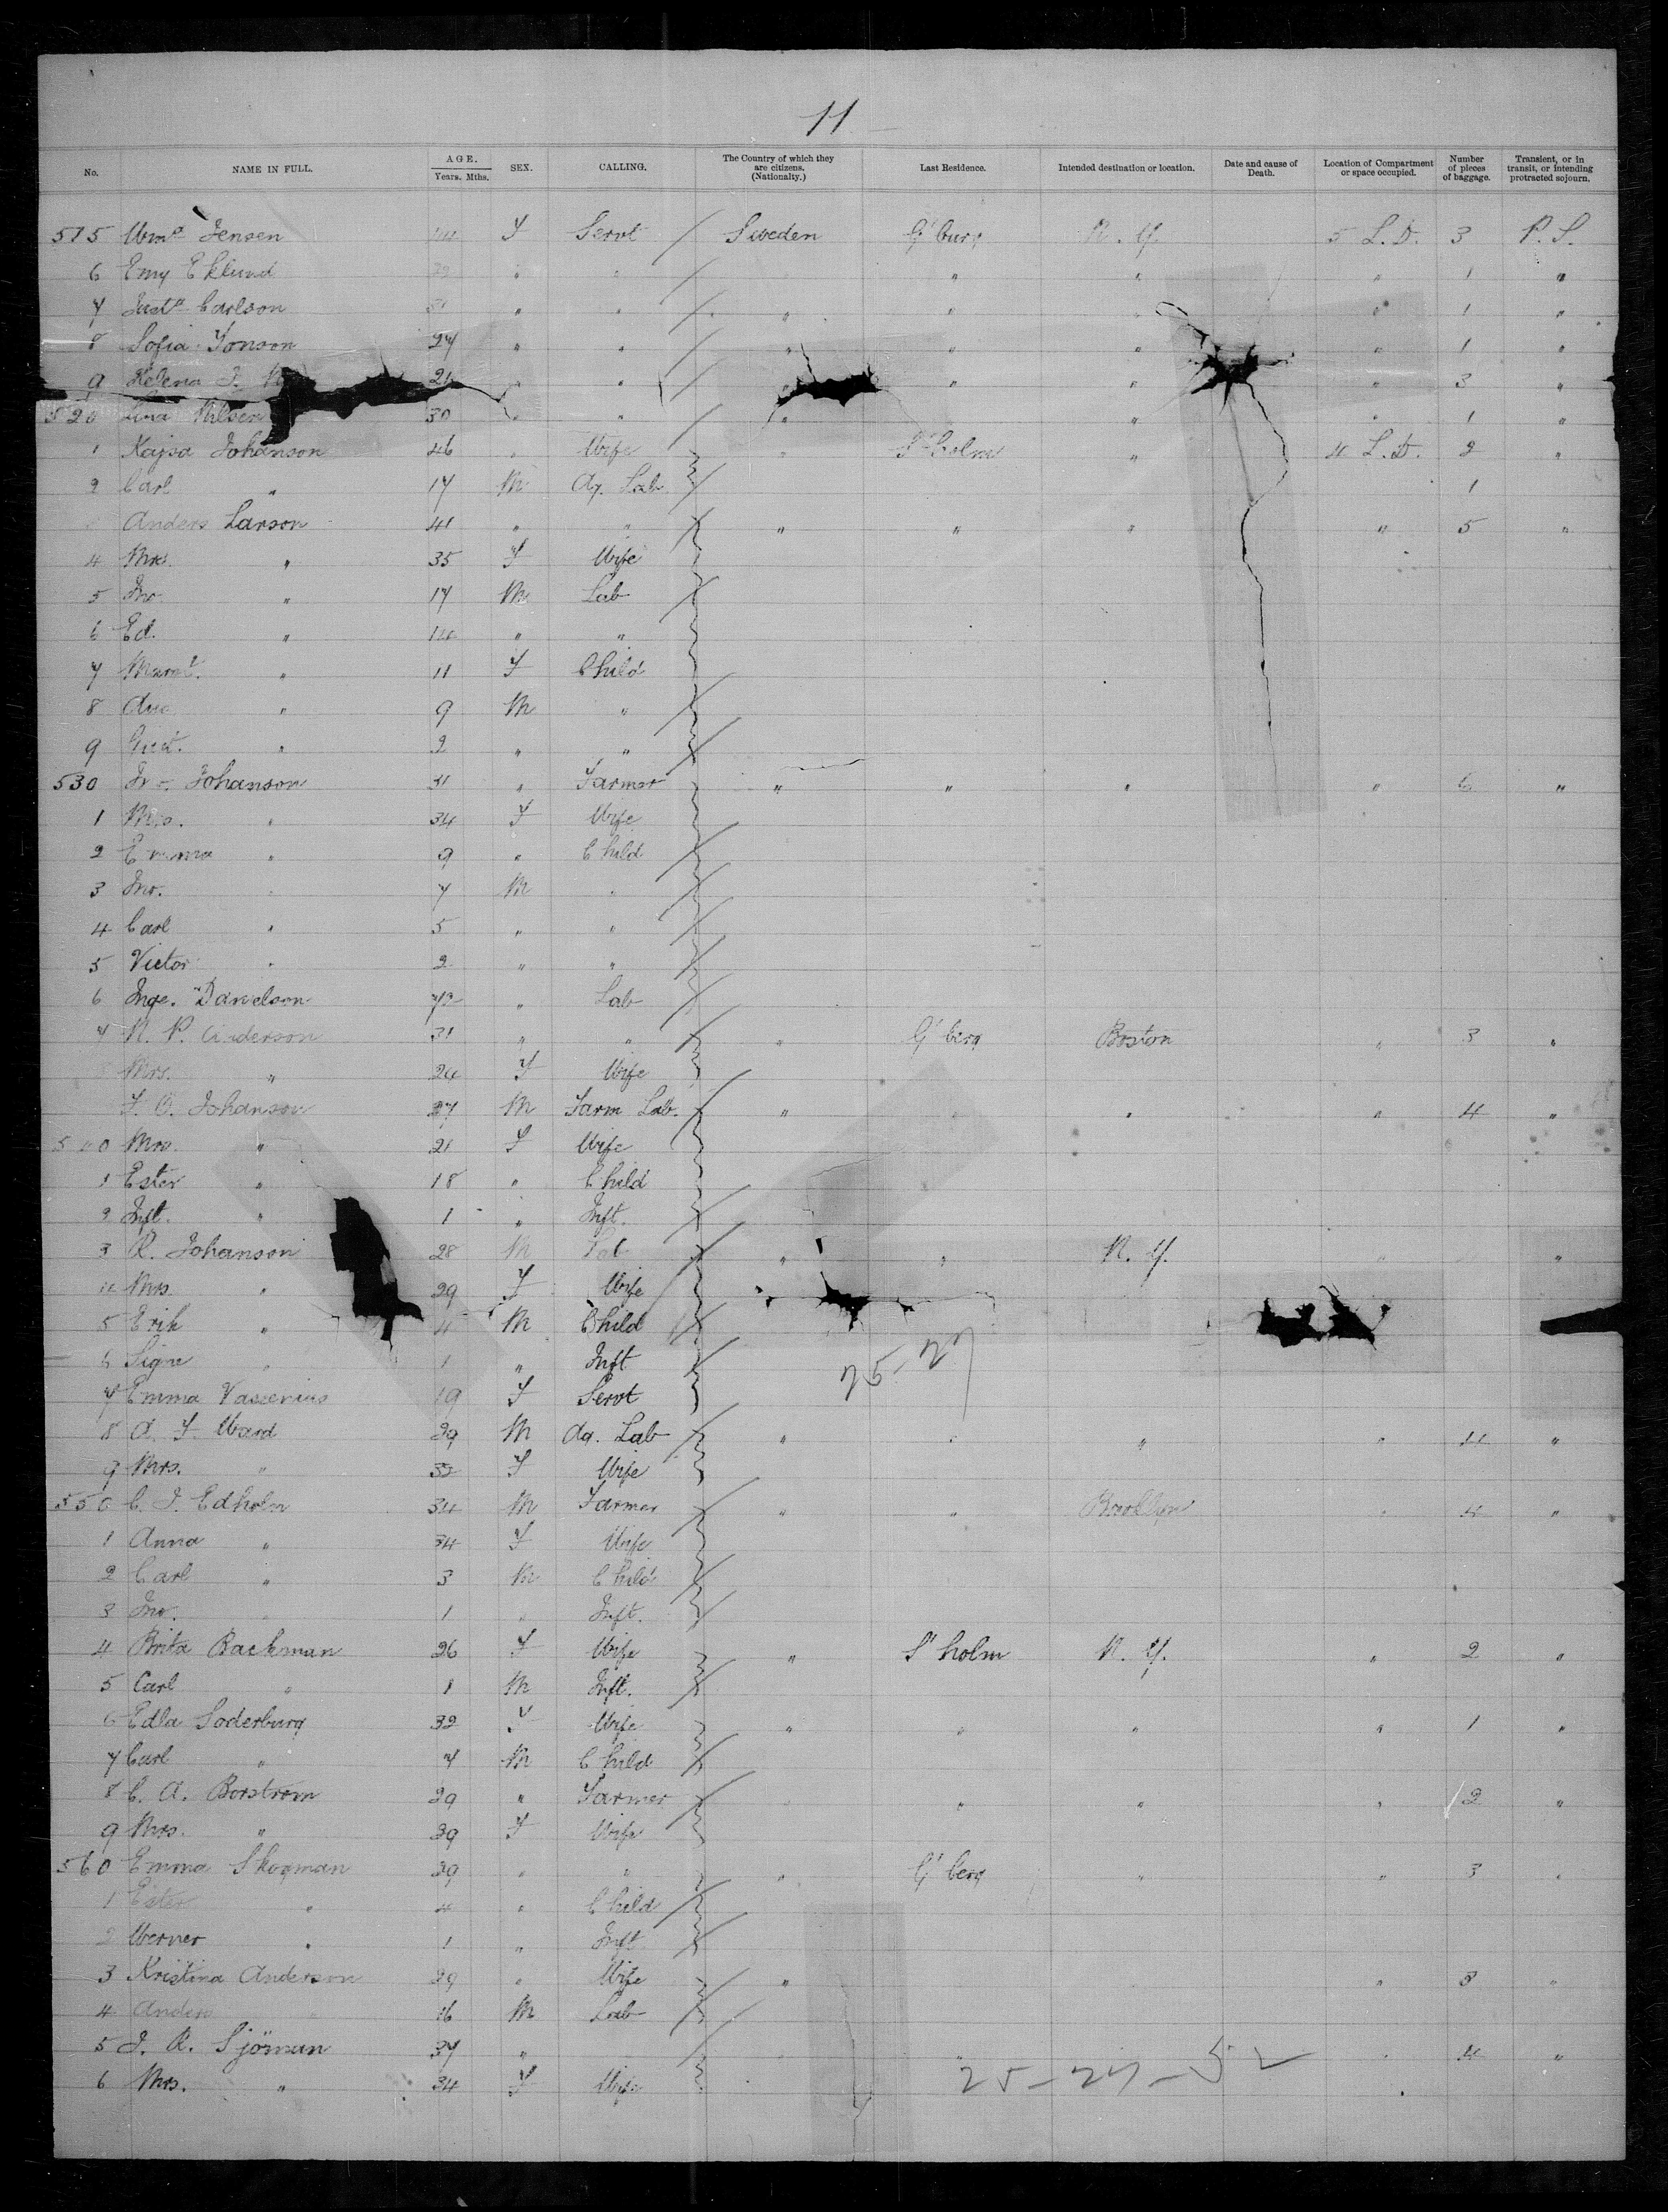 11
No. NAME IN FULL. AGE. Years. Mths. SEX. CALLING. The Country of which they are citizens. (Nationalty.) Last Residence. Intended destination or location. Date and cause of Death. Location of Compartment or space occupied. Number of pieces of baggage. Transient, or in transit, or intending protracted sojourn.
515 Jensen F Servt / Sweden G'burg N. Y. 5 L. D. 3 P. S.
6 Emy Eklund " " / " " " 1 "
7 Carlson " " / " " " " 1 "
8 Sofia Jonson 27 " " / " " " " 1 "
9 Helena J. " " / " " " " 3 "
520 Lina Nilsen 30 " " / " " " " 1 "
1 Kajsa Johanson 46 " Wife " St holm " 4 L. D. 2 "
2 Carl " 17 M Ag. Lab / 1
Anders Larson 41 " " / " " " " 5 "
4 Mrs. " 35 F Wife
5 Jno " 17 M Lab /
6 Ed. " " "
7 Margt. " 11 F Child
8 Aug " 9 M " /
9 Gust. " 2 " " /
530 Johanson 31 " Farmer " " " " 6 "
1 Mrs. " 34 F Wife
2 Emma " 9 " Child /
3 Jno. " 7 M " /
4 Carl " 5 " " /
5 Victor " 2 " " /
6 Inge. Danielson " Lab /
7 N. P. Anderson 31 " " / " G'berg Boston " 3 "
8 Mrs. " 24 F Wife
F. O. Johanson 27 M Farm Lab. / " " " " 4 "
540 Mrs. " 21 F Wife
1 Ester " 18 " Child
2 Inft. " 1 " Inft. /
3 R. Johanson 28 M Lab / " " N. Y. " "
4 Mrs " 29 F Wife
5 Erik " 4 M Child /
6 Signe " 1 " Inft /
25-27
7 Emma 19 F Servt
8 A. F. Ward 39 M Ag. Lab / " " " " 4 "
9 Mrs. " 32 F Wife
550 C. J. Edholm 34 M Farmer / " " Brooklyn " 4 "
1 Anna " 34 F Wife
2 Carl " 3 M Child /
3 Jno. " 1 " Inft. /
4 Brita Backman 26 F Wife " St holm N. Y. " 2 "
5 Carl " 1 M Inft. /
6 Edla Soderburg 32 F Wife " " " " 1 "
7 Carl " 7 M Child /
8 C. A. Borstrom 29 " Farmer / " " " " 2 "
9 Mrs. " 39 F Wife
560 Emma Skogman 29 " " " G'berg " " 3 "
1 Ester " 4 " Child /
2 Werner " 1 " Inft /
3 Kristina Anderson 29 " Wife / " " 3 "
4 Anders " 16 M Lab /
5 J. R. Sjöman 37 " / " " 4 "
6 Mrs. " 34 F Wife
25-27-52